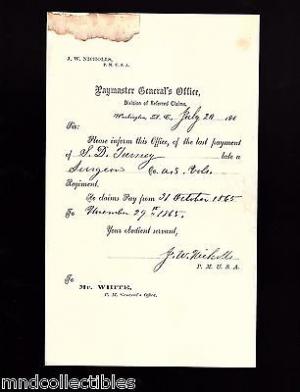 J. W. NICHOLLS,
P. M. U. S. A.
Paymaster General's Office,
Division of Referred Claims,
Washington, D. C., July 20 186
Sir:
Please inform this Office, of the last payment
of S. D. Turney late a
Surgeon Co. U.S. Vols.
Regiment.
He claims Pay from 31 October 1865
To November 29th 1865.
Your obedient servant,
J. W. Nicholls
P. M. U. S. A.
To
Mr. WHITE,
P. M. General's Office.
mndcollectibles